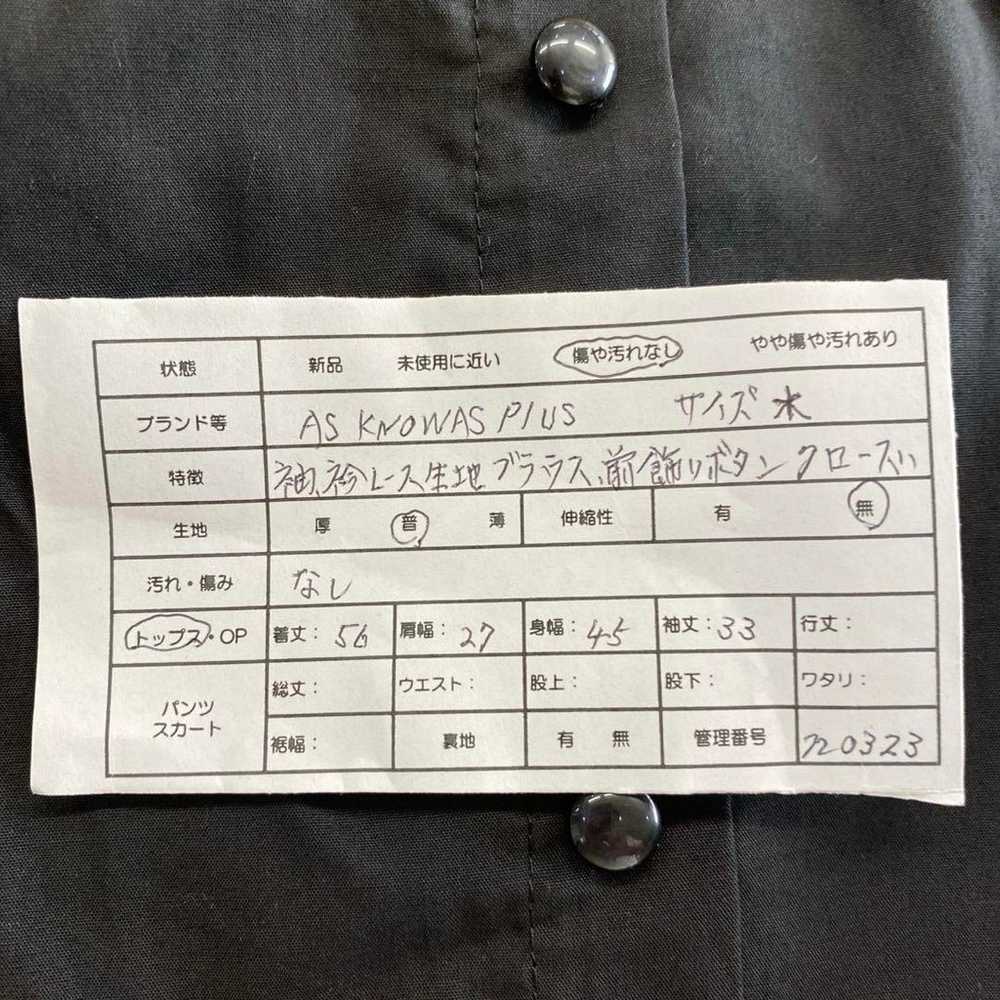 状態 新品 未使用に近い 傷や汚れなし やや傷や汚れあり
ブランド等 AS KNOWAS PLUS サイズ
特徴 袖、衿レース生地ブラウス、前飾りボタン
生地 厚 普 薄 伸縮性 有 無
汚れ・傷み なし
トップス・OP 着丈: 56 肩幅: 27 身幅: 45 袖丈: 33 行丈:
パンツ スカート
総丈: ウエスト: 股上: 股下: ワタリ:
裾幅: 裏地 有 無 管理番号 n0323